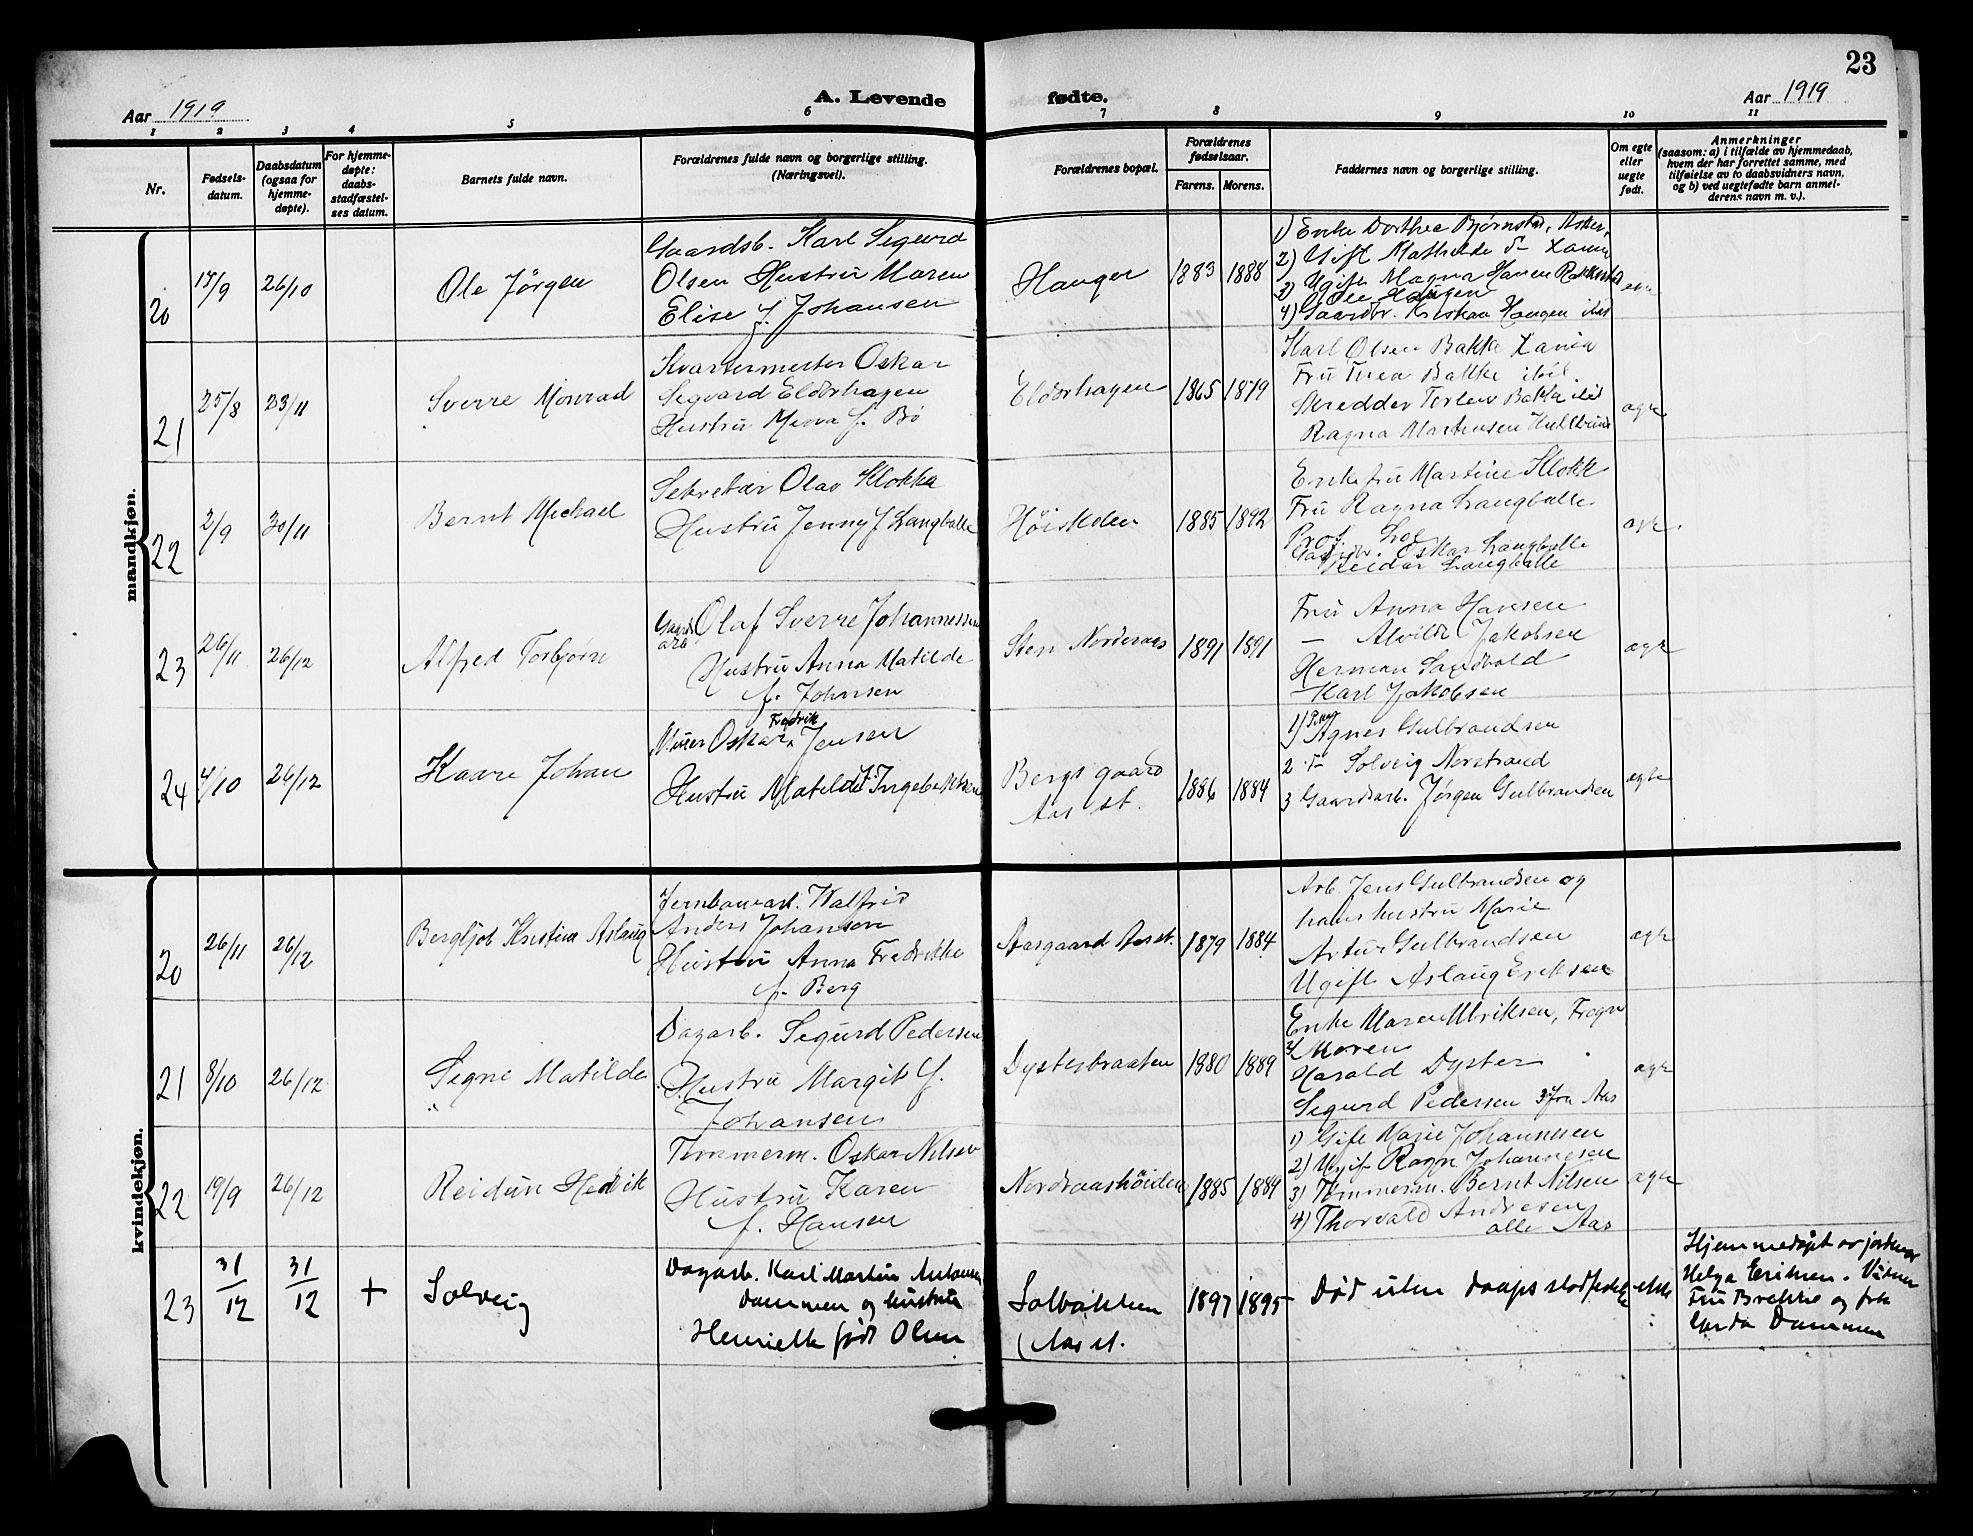 23
Aar 1919
A. Levende fødte.
Aar 1919
1 2 3 4 5 6 7 8 9 10 11
Nr.
Fødsels-
datum.
Daabsdatum
(ogsaa for
hjemme-
døpte).
For hjemme-
døpte:
daabs-
stadfæstel-
ses datum.
Barnets fulde navn.
Forældrenes fulde navn og borgerlige stilling.
(Næringsvei).
Forældrenes bopæl.
Forældrenes
fødselsaar.
Farens. Morens.
Faddernes navn og borgerlige stilling.
Om egte
eller
uegte
født.
Anmerkninger
(saasom: a) i tilfælde av hjemmedaab,
hvem der har forrettet samme, med
tilføielse av to daabsvidners navn,
og b) ved uegtefødte barn anmel-
derens navn m. v.).
mandkjøn.
20 26/10
Ole Jørgen
Gaardsb. Karl Sigurd
Olsen Hustru Maren
Elise f. Johansen
1883 1888
1) Enke Dorthea Bjørnstad, Asker,
2) Gift Mathilde
3) Ugift Magna Hansen
4) Gaardbr. Kristian Haugen
21 25/8 23/11
Sverre Monrad
Kvartermester Oskar
Sigvard Eldorhagen
Hustru f. Bø
Eldorhagen
1865 1879
Karl Olsen Bakke
Fru Thea Bakke ibid.
Skredder Torleiv Bakke ibid
Ragna Martinsen
egte
22 2/9 30/11
Bernt Michael
Sekretær Olav Klokke
Hustru Jenny f Langballe
Høiskolen
1885 1892
Enkefru Martine Klokk
Fru Ragna Langballe
Prof.
Gaardbr. Oskar Langballe
Reidar Langballe
egte
23 26/11 26/12
Alfred Torbjørn
Gaards
arb. Olaf Sverre Johannessen
Hustru Anna Matilde
f. Johnsen
Sten Norderaas
1891 1891
Fru Anna Hansen
— Alvilde Jakobsen
Herman Sandvold
Karl Jakobsen
egte
24 4/10 26/12
Kaare Johan
Murer Oskar Fredrik Jensen
Hustru Matilde f. Ingebretsen
Bergs gaard
Aas st.
1886 1884
1) Pike Agnes Gulbrandsen
2 Solveig Norstrand
3 Gaardsarb. Jørgen Gulbrandsen
egte
kvindekjøn.
20 26/11 26/12
Bergljot Kristine Aslaug
Jernbanearb. Walfrid
Anders Johansen
Hustru Anna Fredrikke
f. Berg
Aasgaard Aas st.
1879 1884
Arb. Jens Gulbrandsen og
hans hustru Marie
Artur Gulbrandsen
Ugift Aslaug Eriksen
egte
21 8/10 26/12
Signe Matilde
Dagarb. Sigurd Pedersen
Hustru Margit f.
Johansen
Dysterbraaten
1880 1889
Enke Maren Ulriksen, Frogn
Moren
Harald Dyster
Sigurd Pedersen 3 fra Aas
egte
22 19/9 26/12
Reidun Hedvik
Tømmerm. Oskar Nilsen
Hustru Karen
f. Hansen
Nordraashöiden
1885 1889
1) Gift Marie Johannesen
2) Ugift Ragn Johannesen
3) Tømmerm. Bernt Nilsen
4) Thorvald Andresen
alle Aas
egte
23 31/12 31/12 +
Solveig
Dagarb. Karl Martin Antonsen
Dammen og hustru
Henriette født Olsen
Solbakken
Aas st.
1897 1895
Død uten daapsstadfestelse
ekte
Hjemmedøpt av jordmor
Helga Eriksen. Vidner
Fru Brekke og frk
Gerda Dammen